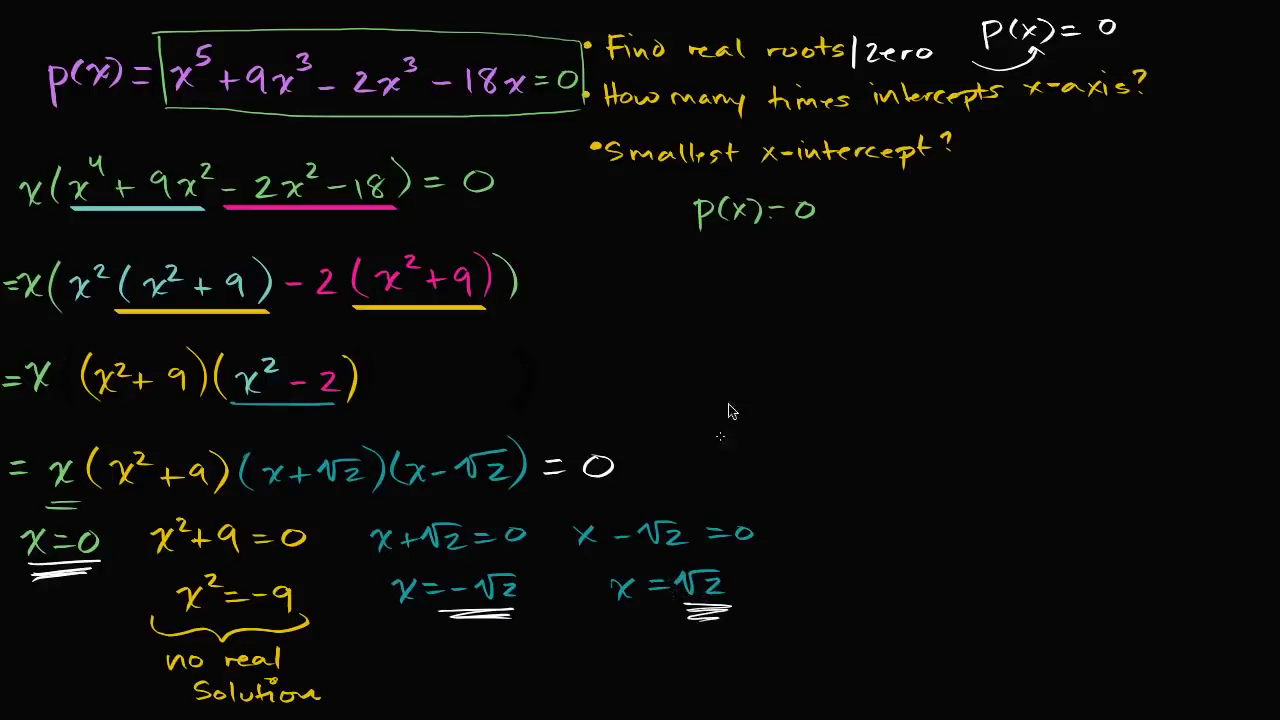 p(x) = x⁵ + 9x³ - 2x³ - 18x = 0
• Find real roots/zero p(x) = 0
• How many times intercepts x-axis?
• Smallest x-intercept?
p(x) = 0
x(x⁴ + 9x² - 2x² - 18) = 0
= x(x²(x² + 9) - 2(x² + 9))
= x (x² + 9)(x² - 2)
= x(x² + 9)(x + √2)(x - √2) = 0
x = 0 x² + 9 = 0 x + √2 = 0 x - √2 = 0
x² = -9 x = -√2 x = √2
no real
solution